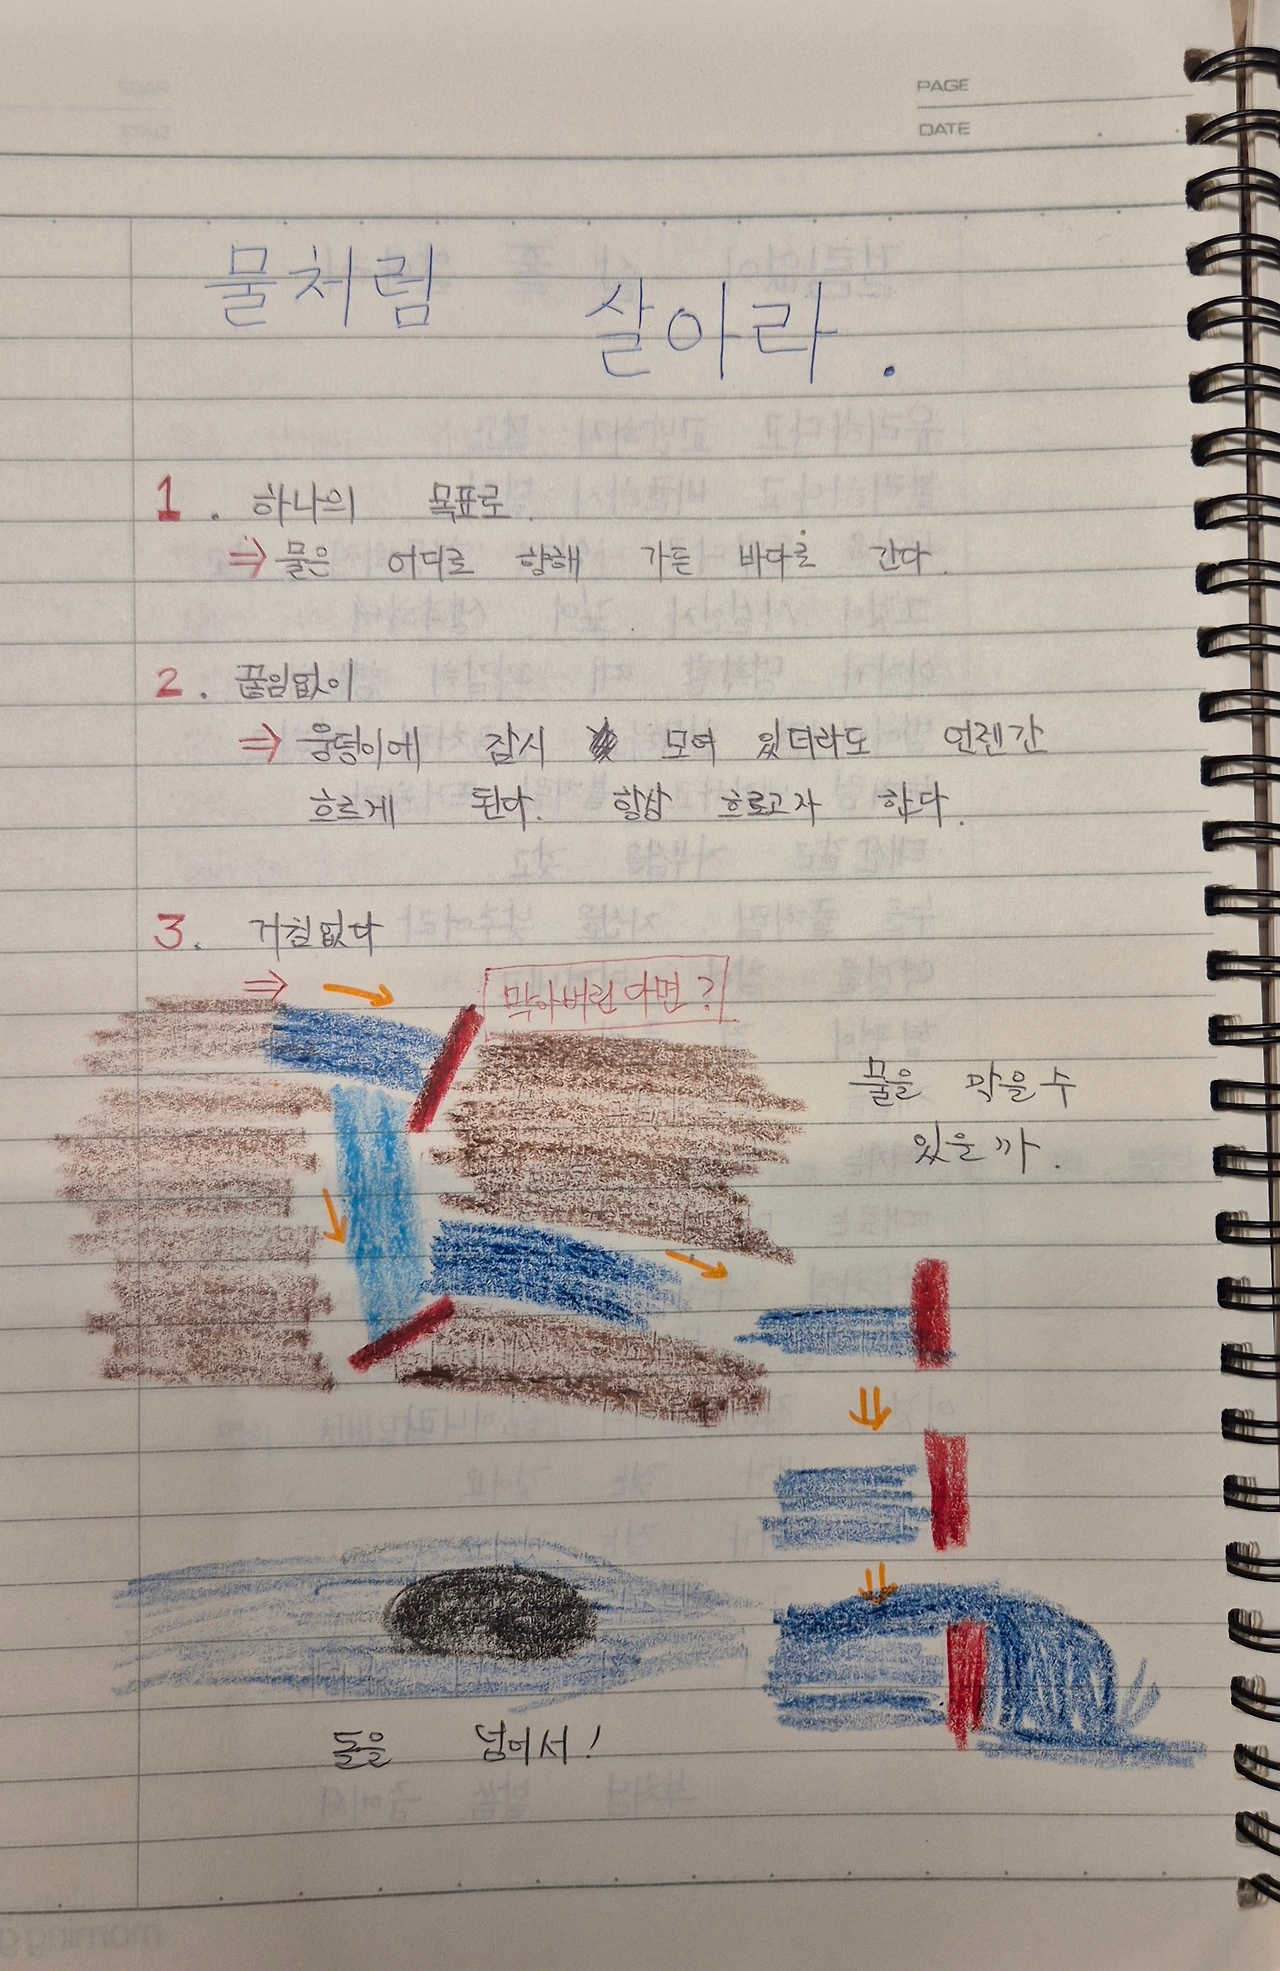 PAGE
DATE
물처럼 살아라.
1. 하나의 목표로.
⇒ 물은 어디로 향해 가든 바다로 간다.
2. 끊임없이
⇒ 웅덩이에 잠시 모여 있더라도 언젠간
흐르게 된다. 항상 흐르고자 한다.
3. 거침없다
⇒ →
막아버린다면?
물을 막을 수
있을까.
돌을 넘어서!